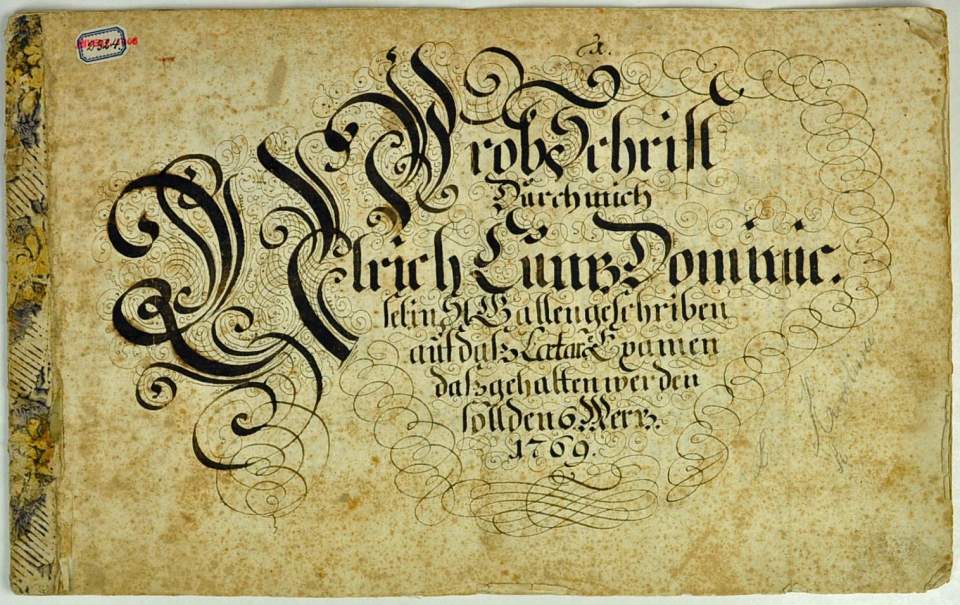 D 324.
Prob Schrifft
Durch mich
Ulrich Cuntz Dominic.
in St Gallen geschriben
auf daß Examen
daß gehalten werden
soll den 6 Mertz.
1769.